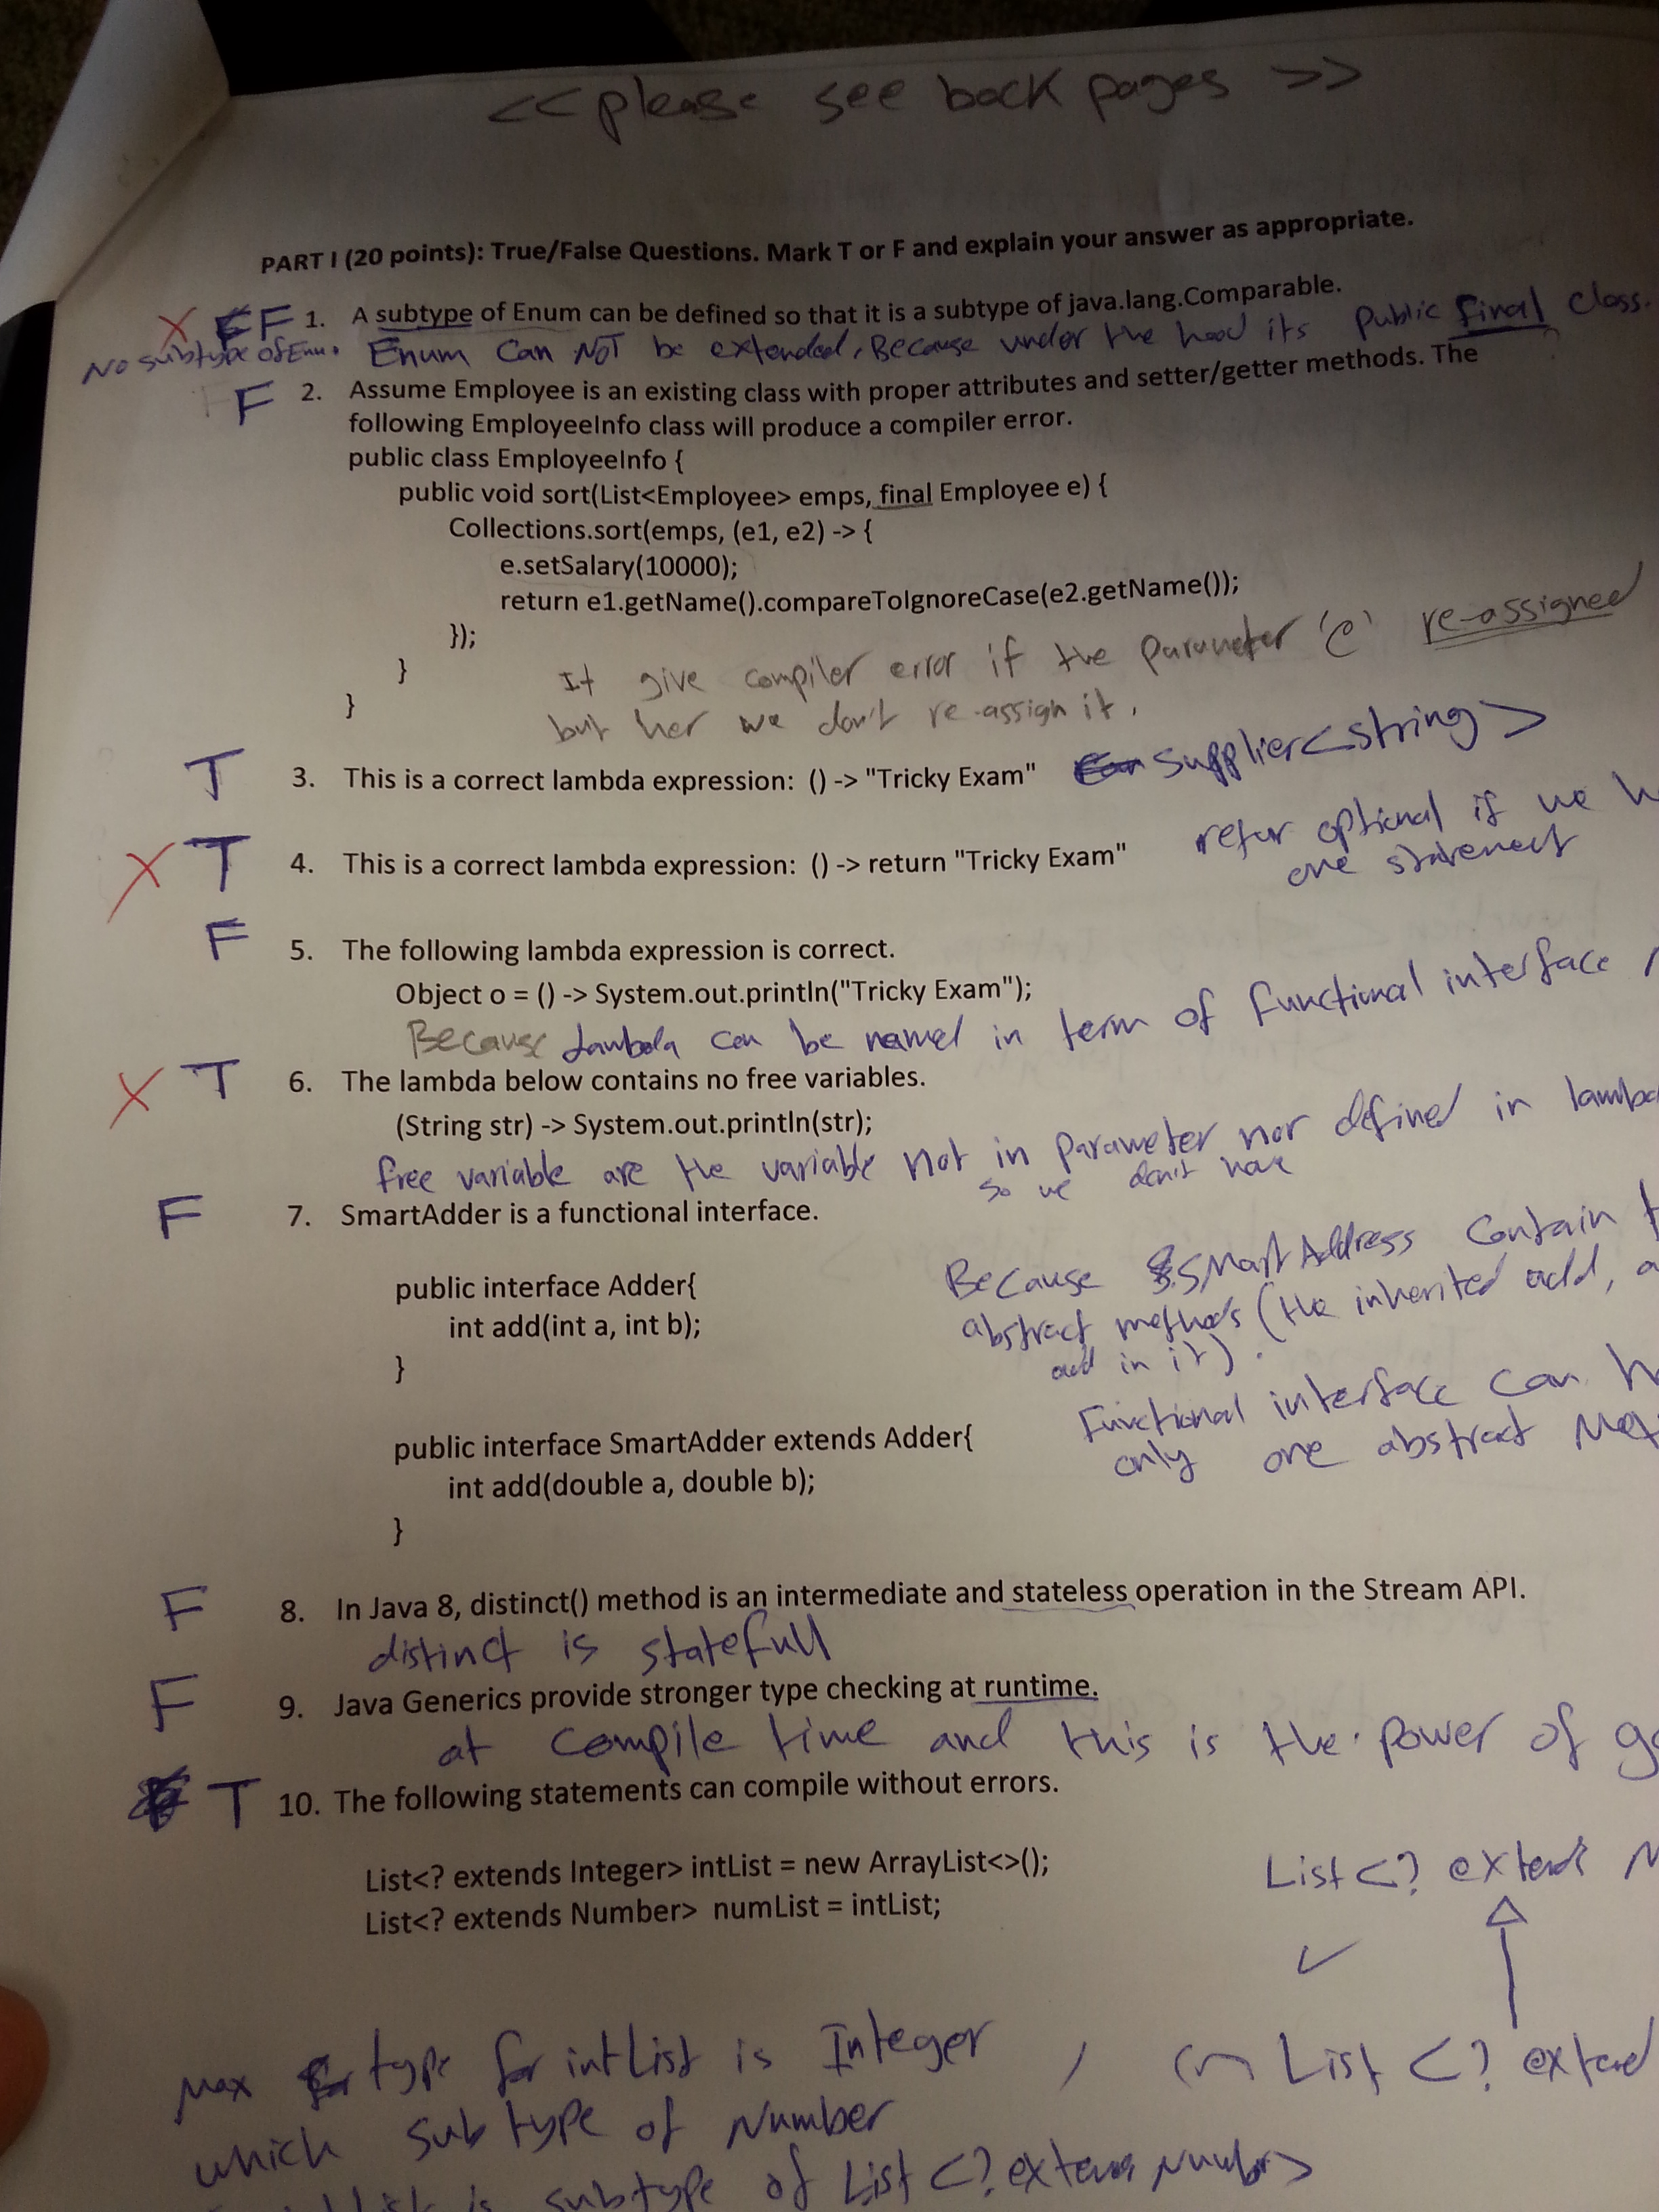 << please see back pages >>
PART I (20 points): True/False Questions. Mark T or F and explain your answer as appropriate.
X F 1. A subtype of Enum can be defined so that it is a subtype of java.lang.Comparable.
No subtype of Enum. Enum Can NOT be extended, Because under the hood its public final class.
F 2. Assume Employee is an existing class with proper attributes and setter/getter methods. The
following EmployeeInfo class will produce a compiler error.
public class EmployeeInfo {
public void sort(List<Employee> emps, final Employee e) {
Collections.sort(emps, (e1, e2) -> {
e.setSalary(10000);
return e1.getName().compareToIgnoreCase(e2.getName());
});
}
}
It give compiler error if the parameter 'e' re-assigned
but her we don't re-assign it.
T 3. This is a correct lambda expression: () -> "Tricky Exam" Supplier<string>
X T 4. This is a correct lambda expression: () -> return "Tricky Exam"
optional if we
one statement
F 5. The following lambda expression is correct.
Object o = () -> System.out.println("Tricky Exam");
Because Lambda can be named in term of functional interface
X T 6. The lambda below contains no free variables.
(String str) -> System.out.println(str);
free variable are the variable not in parameter nor defined in
so we don't have
F 7. SmartAdder is a functional interface.
public interface Adder{
int add(int a, int b);
}
Because SmartAddress Contain
abstract methods (the inherited add,
add in it).
public interface SmartAdder extends Adder{
int add(double a, double b);
}
Functional interface can
only one abstract
F 8. In Java 8, distinct() method is an intermediate and stateless operation in the Stream API.
distinct is statefull
F 9. Java Generics provide stronger type checking at runtime.
at compile time and this is the power of
T 10. The following statements can compile without errors.
List<? extends Integer> intList = new ArrayList<>();
List<? extends Number> numList = intList;
List<? extends
Max type for intList is Integer , List <? extend
which subtype of Number
is subtype of List<? extends Number>